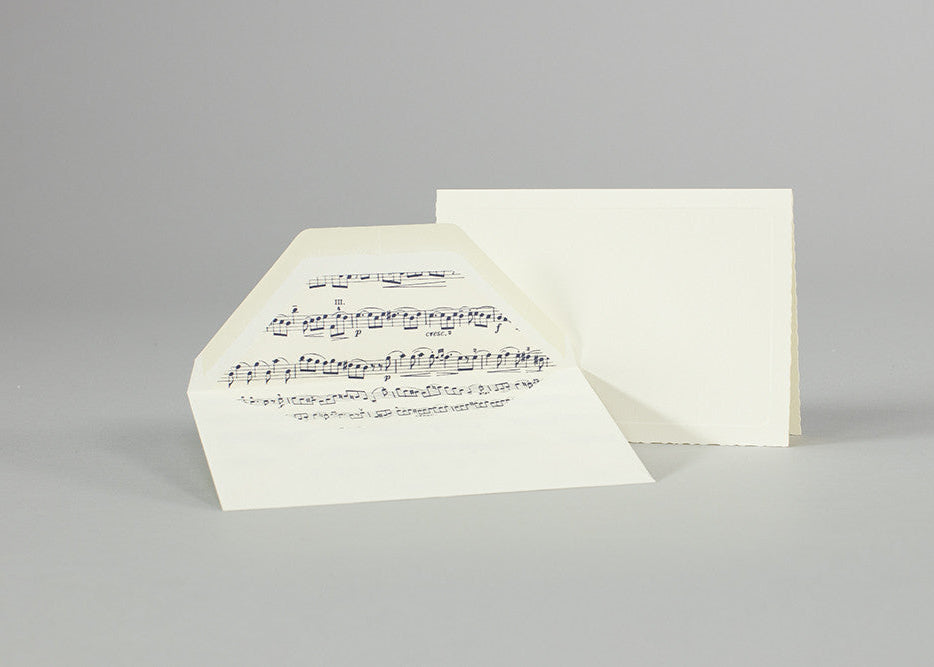 III.
p cresc. f
p